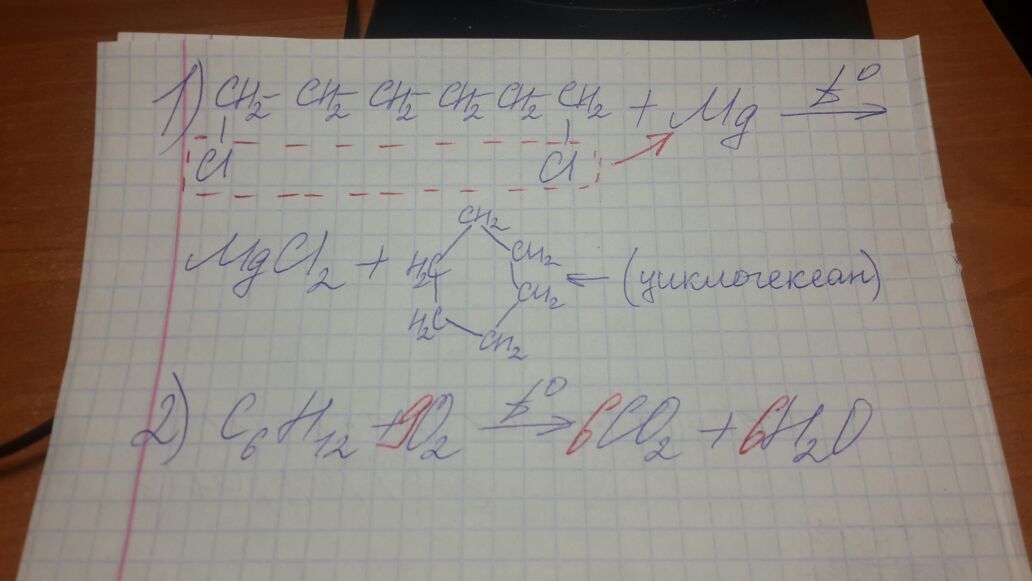 1) CH₂- CH₂- CH₂- CH₂- CH₂- CH₂ + Mg t⁰→
Cl Cl
MgCl₂ + CH₂ CH₂ CH₂ CH₂ H₂C H₂C ← (циклогексан)
2) C₆H₁₂ + 9O₂ t⁰→ 6CO₂ + 6H₂O